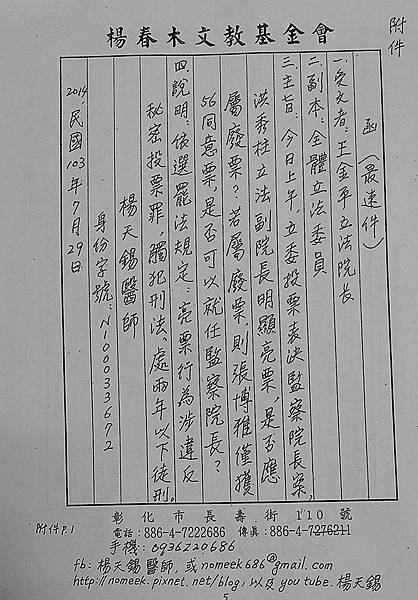 附件
楊春木文教基金會
函(最速件)
一、受文者:王金平立法院長
二、副本:全體立法委員
三、主旨:今日上午,立委投票表決監察院長案,
洪秀柱立法副院長明顯亮票,是否應
屬廢票?若屬廢票,則張博雅僅獲
56同意票,是否可以就任監察院長?
四、說明:依選罷法規定:亮票行為涉違反
秘密投票罪,觸犯刑法、處兩年以下徒刑。
楊天錫醫師
身份字號:N100033672
2014,民國103年7月29日
彰化市長壽街110號
電話:886-4-7222686 傳真:886-4-7276211
附件P.1
手機:0936220686
fb:楊天錫醫師,或nomeek686@gmail.com
http://nomeek.pixnet.net/blog,以及you tube.楊天錫
5